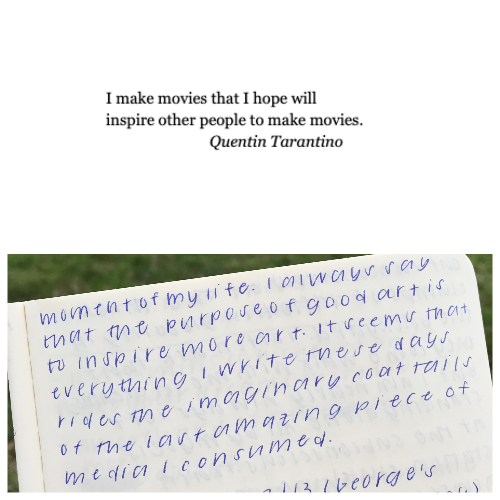 I make movies that I hope will
inspire other people to make movies.
Quentin Tarantino
moment of my life. I always say
that the purpose of good art is
to inspire more art. It seems that
everything I write these days
rides the imaginary coat tails
of the last amazing piece of
media I consumed.
George's